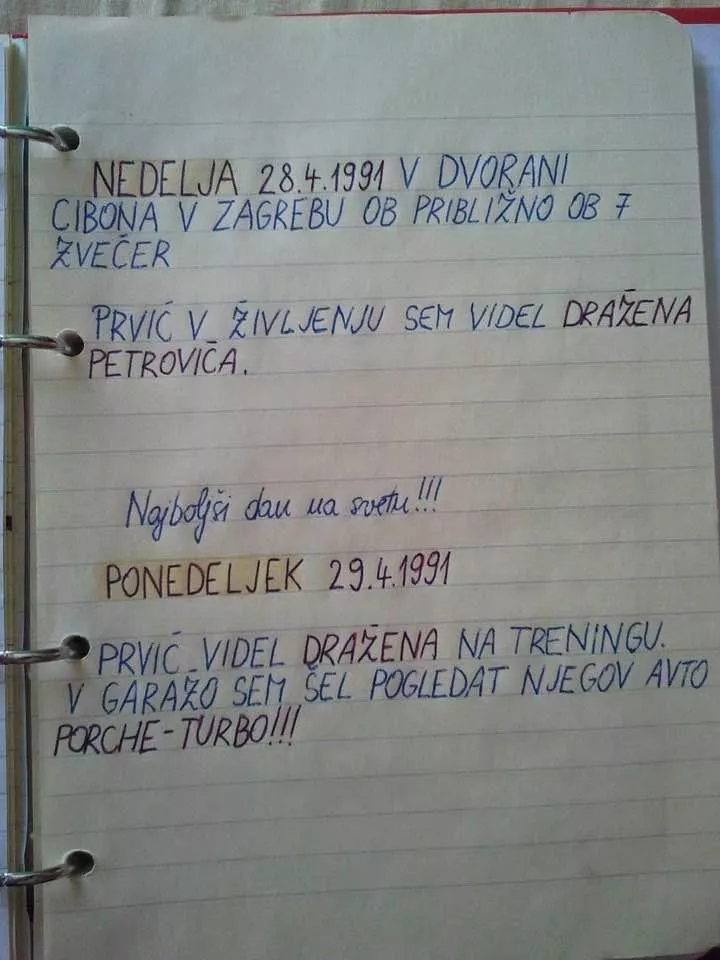 NEDELJA 28.4.1991 V DVORANI
CIBONA V ZAGREBU OB PRIBLIŽNO OB 7
ŽVEČER
PRVIČ V ŽIVLJENJU SEM VIDEL DRAŽENA
PETROVIČA.
Najboljši dan na svetu!!!
PONEDELJEK 29.4.1991
PRVIČ VIDEL DRAŽENA NA TRENINGU.
V GARAŽO SEM ŠEL POGLEDAT NJEGOV AVTO
PORCHE-TURBO!!!